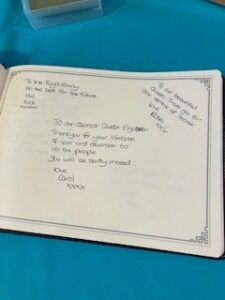 To the Royal Family
All the best for the future
love
xxxxxx
To our beautiful
Queen. Thank you for
your service
love
xxx
To our dearest Queen Elizabeth
Thankyou for your lifetime
of love and devotion to
all the people.
You will be sadly missed.
love
Carol
xxxx